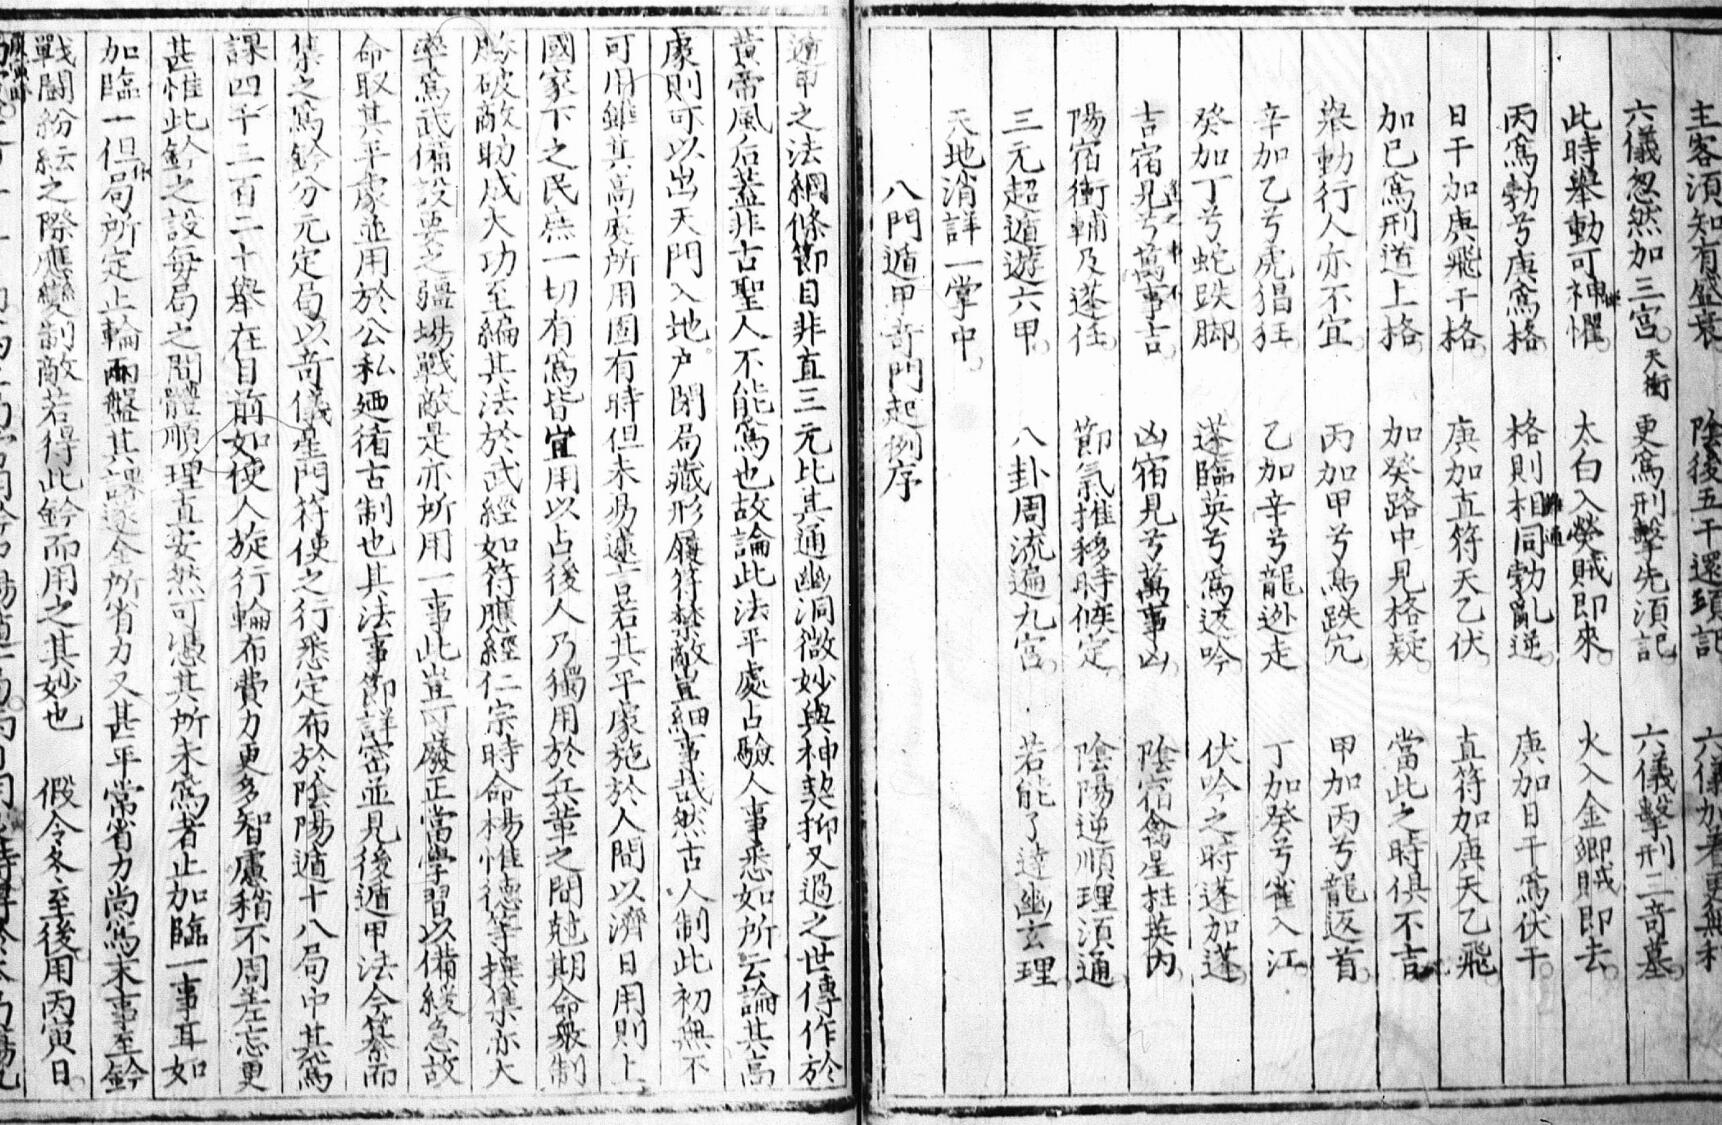 主客須知有盛衰 陰後五干還須記 六儀加着更無利
六儀忽然加三宮 天衝 更為刑擊先須記 六儀擊刑三奇墓
此時舉動可神懼 太白入熒賊即來 火入金鄉賊即去
丙為勃兮庚為格 格則相同勃亂逆 庚加日干為伏干
日干加庚飛干格 庚加直符天乙伏 直符加庚天乙飛
加己為刑道上格 加癸路中見格疑 當此之時俱不吉
舉動行人亦不宜 丙加甲兮鳥跌穴 甲加丙兮龍返首
辛加乙兮虎猖狂 乙加辛兮龍逃走 丁加癸兮雀入江
癸加丁兮蛇跌脚 蓬臨英兮為返吟 伏吟之時蓬加蓬
吉宿見兮萬事吉 凶宿見兮萬事凶 陰宿禽星柱英內
陽宿衝輔及蓬任 節氣推移時候定 陰陽逆順理須通
三元超遁遊六甲 八卦周流遍九宮 若能了達幽玄理
天地消詳一掌中
八門遁甲奇門起例序
遁甲之法綱條節目非直三元比其通幽洞微妙與神契抑又過之世傳作於
黃帝風后蓋非古聖人不能為也故論此法平處占驗人事悉如所云論其高
處則可以出天門入地户閉局藏形履符禁敵豈細事哉然古人制此初無不
可用雖其高處所用固有時但未易遽言若其平處施於人間以濟日用則上
國家下之民庶一切有為皆宜用以占後人乃獨用於兵革之間尅期命衆制
勝破敵助成大功至編其法於武經如符應經仁宗時命楊惟德等撰集亦大
率為武備設要之疆場戰敵是亦所用一事此豈可廢正當學習以備緩急故
命取其平處並用於公私廼循古制也其法事節詳密並見後遁甲法今纂而
集之為鈐分元定局以奇儀星門符使之行悉定布於陰陽遁十八局中其為
課四千三百二十舉在目前如使人旋行輪布費力更多智慮稍不周差忘更
甚惟此鈐之設每局之間體順理直安然可憑其所未為者止加臨一事耳如
加臨一但局所定止輪兩盤其課遂全所省力又甚平常省力尚為末事至鈐
戰鬪紛紜之際應變制敵若得此鈐而用之其妙也 假令冬至後用丙寅日